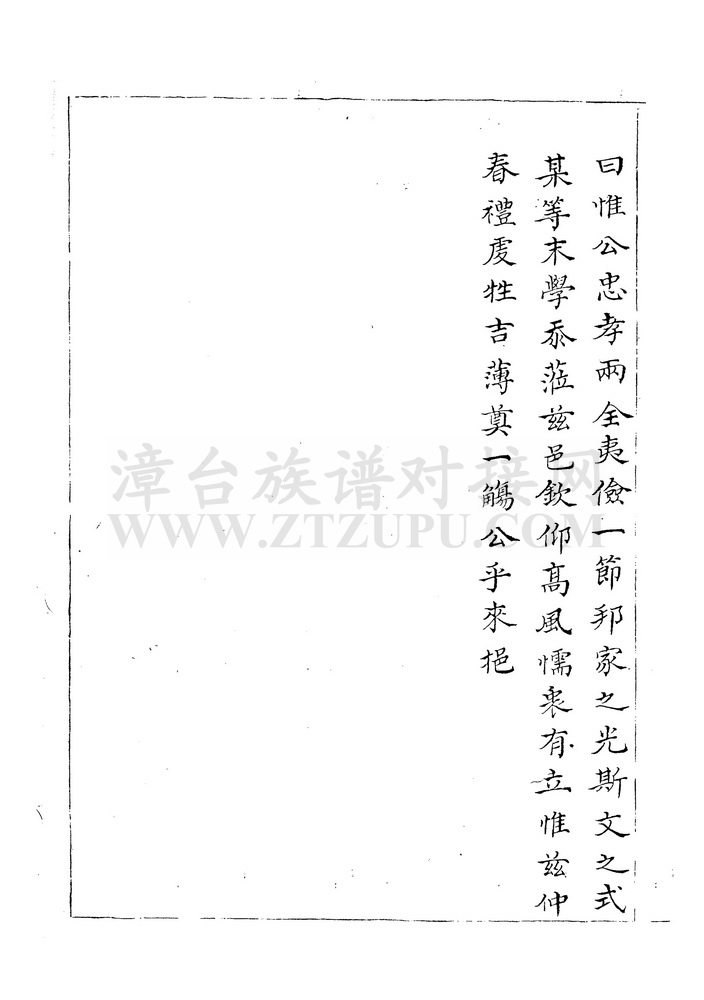 曰惟公忠孝兩全夷儉一節邦家之光斯文之式
某等末學忝蒞兹邑欽仰高風懦衷有立惟兹仲
春禮虔牲吉薄奠一觴公乎來挹
漳台族谱对接网
WWW.ZTZUPU.COM